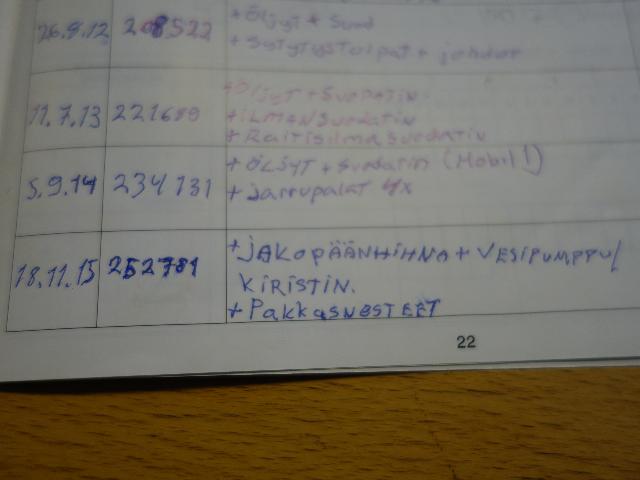 26.9.12 208522 + Öljyt + Suod
+ Sytytystolpat + johdot
11.7.13 221689 + Öljyt + Suodatin
+ iLMANSuodatin
+ Raitisilmasuodatin
5.9.14 234131 + ÖLJyT + Suodatin (Mobil 1)
+ Jarrupalat 4x
18.11.15 252781 + JAKOPÄÄNHIHNA + VESIPUMPPU/
KIRISTIN.
+ PakkasNESTEET
22